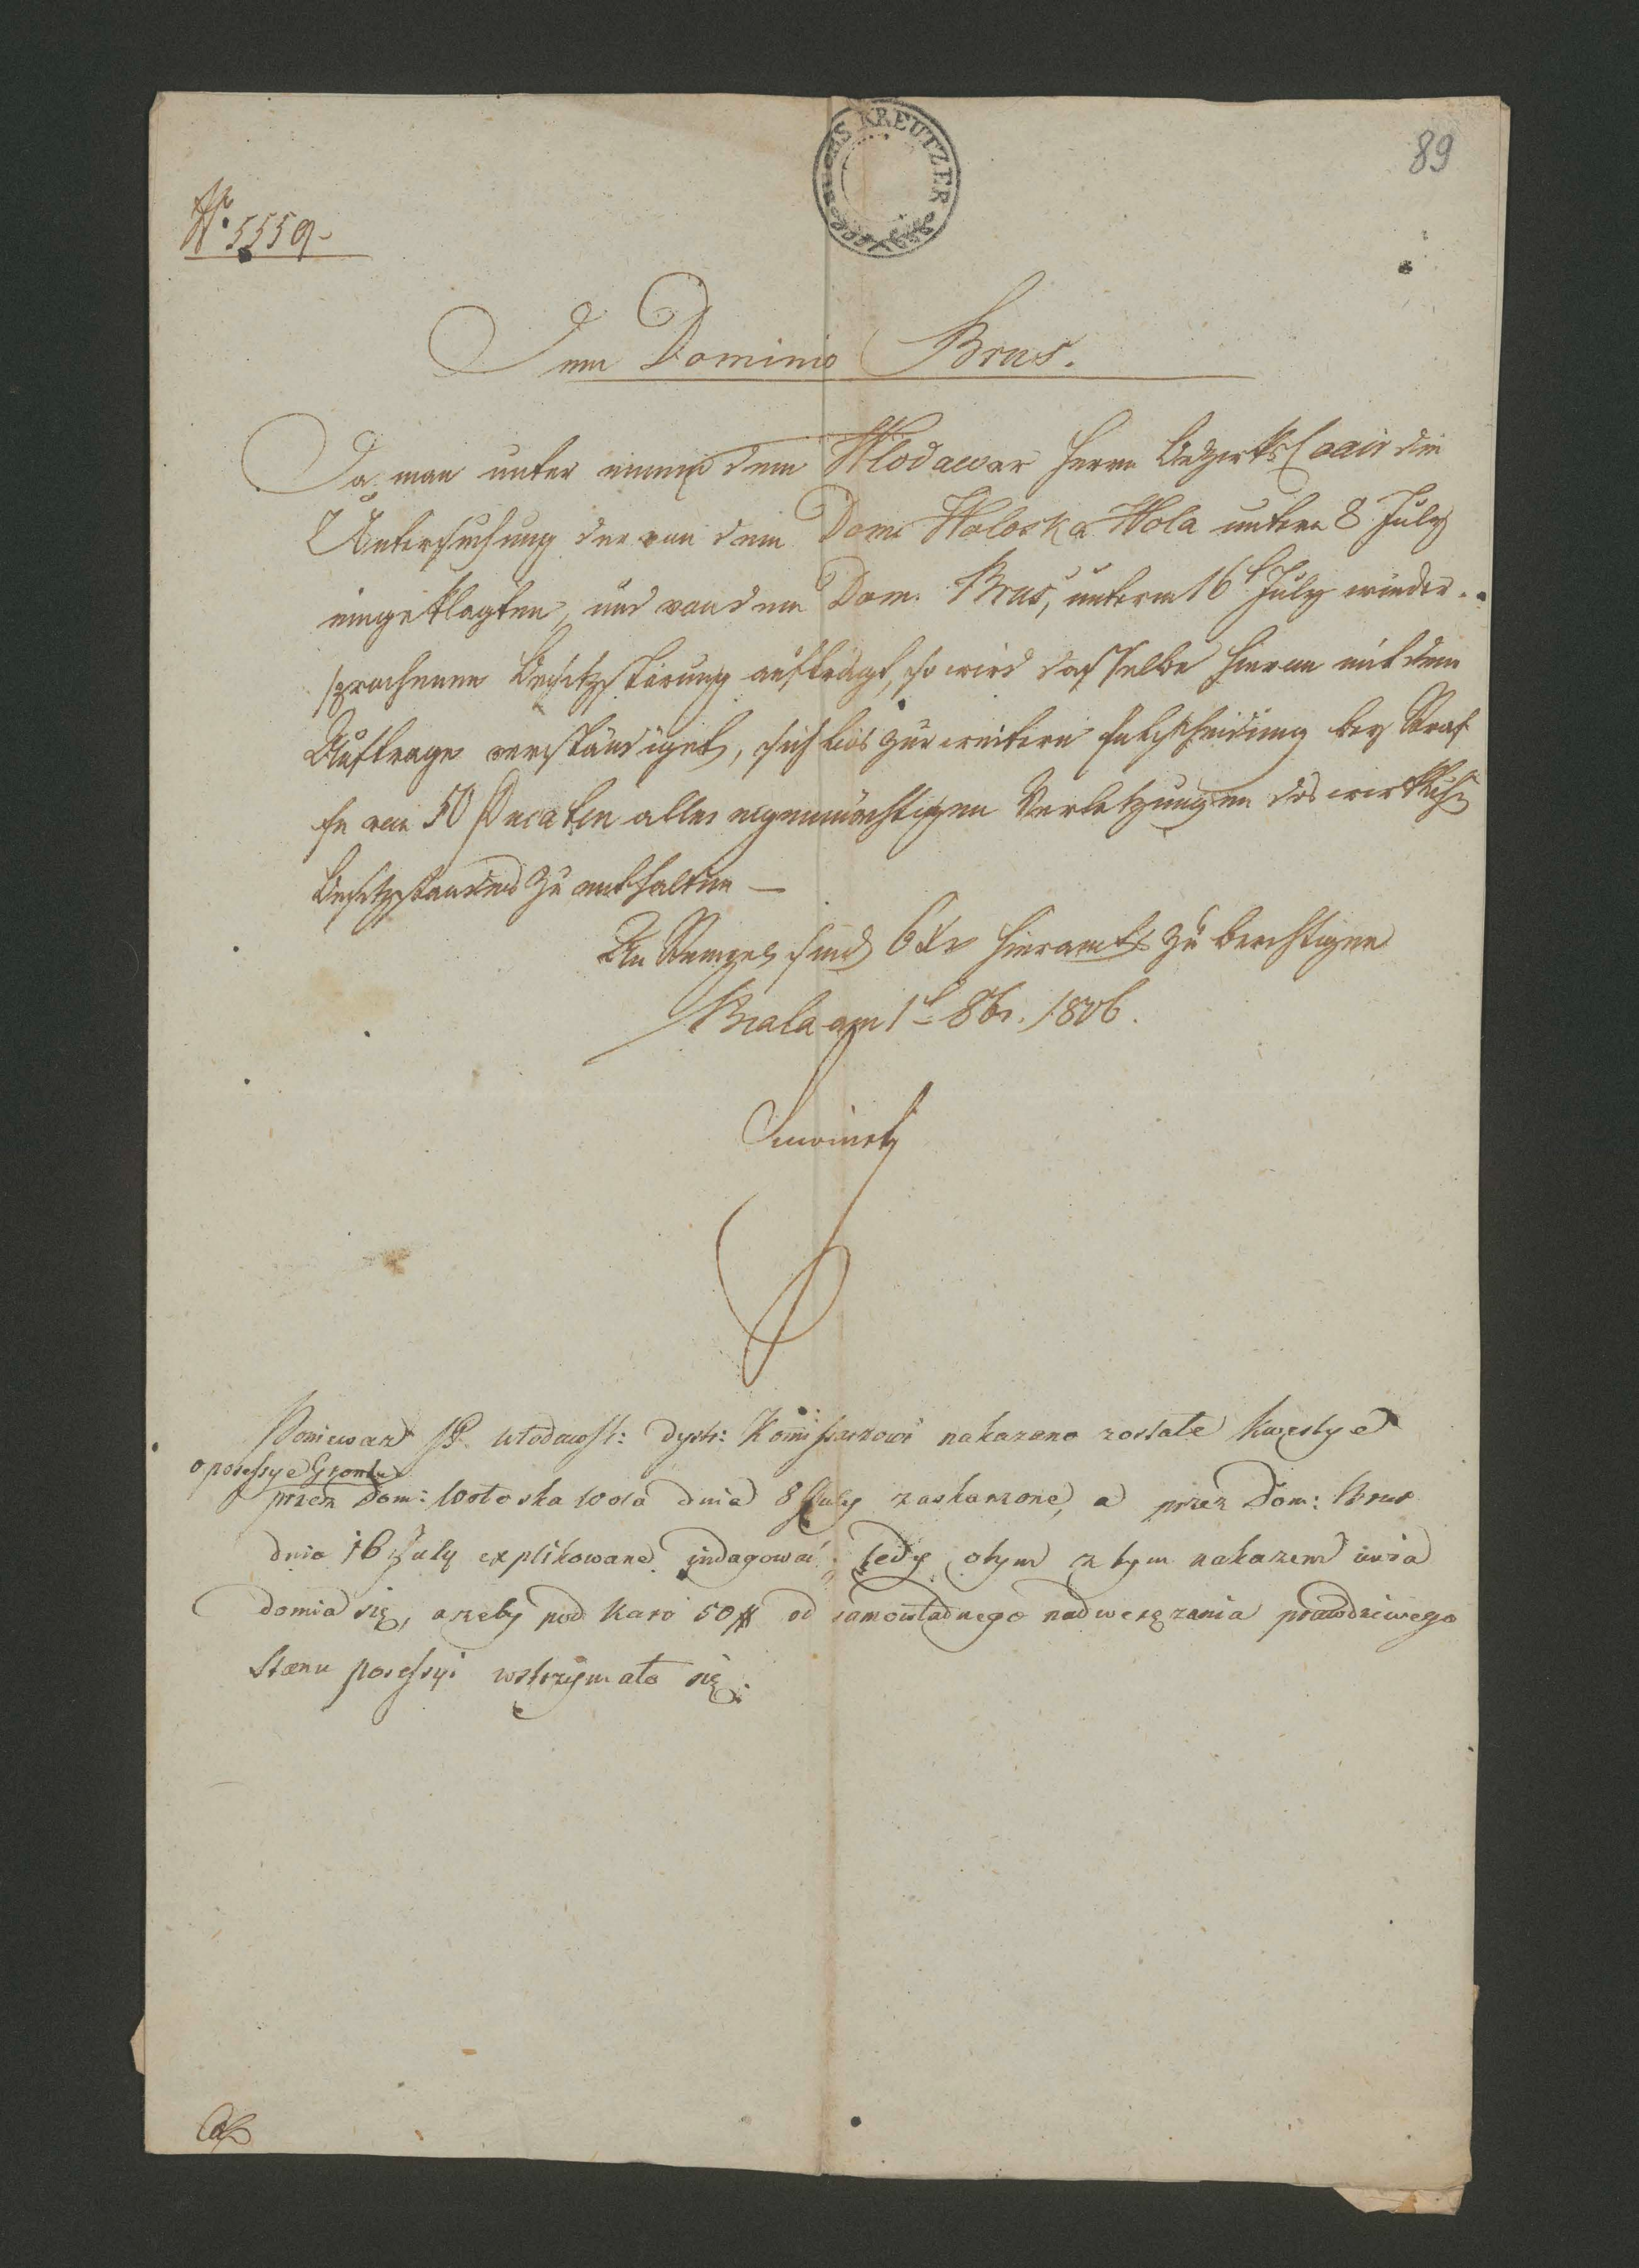 89
S KREUTZER
No. 5559.
Dem Dominio Brus.
Da man unter einem dem Wlodawar Herrn Bezirks Coair die
Untersuchung der von dem Dom: Woloska Wola unterm 8 July
eingeklagten, und von dem Dom. Brus, unterm 16t July wieder..
sprochenen Besitzstörung aufträgt, so wird dasselbe hievon mit dem
Auftrage verständiget, sich bis zur weitern Entscheidung bey Straf
fe von 50 Ducaten aller eigenmächtigen Verletzungen des wirklich
Besitzstandes zu enthalten —
An Stempel sind 6 Xr hieramts zu berichtigen
Biala am 1t 8br. 1806.
Poniewarz JP. Włodawsk: dystr: Kommissarzowi nakazano zostało kwestye
o posessye Grontu
przez Dom: Wołoska Wola dnia 8 July zaskarzone, a przez Dom: Brus
dnia 16 July explikowane indagować, tedy otym z tym nakazem uwia
domia się, azeby pod karo 50 # od samowładnego nadweręzania prawdziwego
Stanu posessyi wstrzymało się.